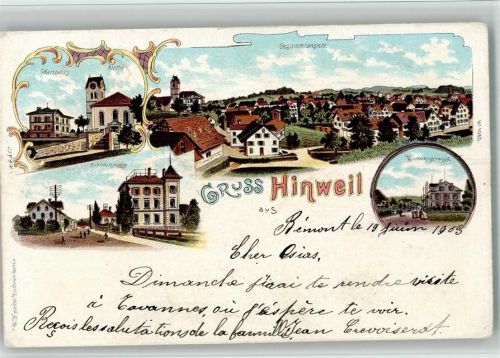 Gesammtansicht
Pfarrhaus
Kirche
Bahnhofstrasse
Gruss
aus
Hinweil
Bémont le 19 juin 1903
Cher Osias,
Dimanche j'irai te rendre visite
à Tavannes, où j'éspère te voir.
Reçois les salutations de la famille Jean Crevoiserat